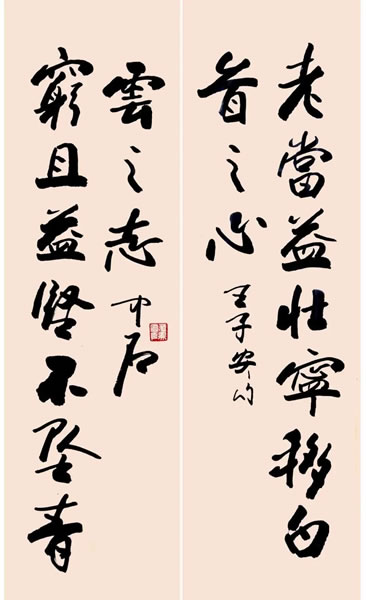 老當益壯寧移白
首之心 王子安句
窮且益堅不墜青
雲之志 中石